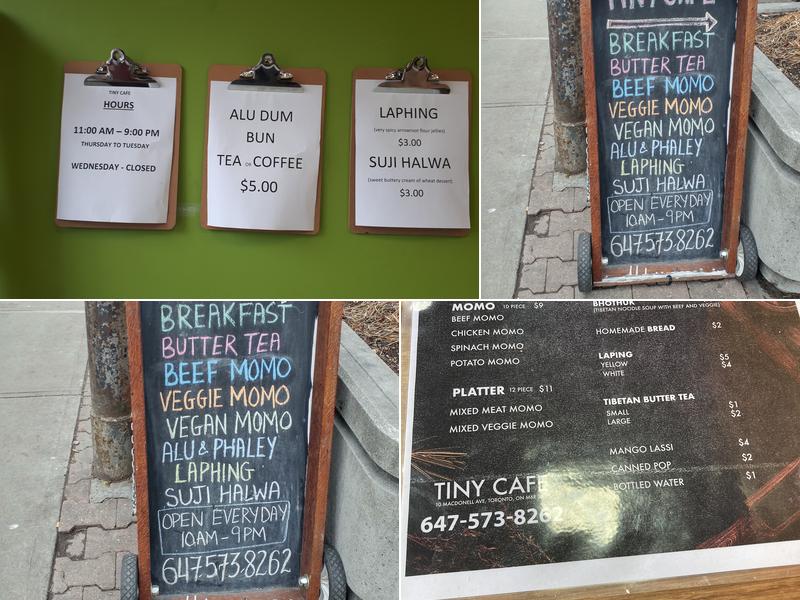 TINY CAFE
HOURS
11:00 AM – 9:00 PM
THURSDAY TO TUESDAY
WEDNESDAY - CLOSED
ALU DUM
BUN
TEA OR COFFEE
$5.00
LAPHING
(very spicy arrowroot flour jellies)
$3.00
SUJI HALWA
(sweet buttery cream of wheat dessert)
$3.00
TINY CAFE
BREAKFAST
BUTTER TEA
BEEF MOMO
VEGGIE MOMO
VEGAN MOMO
ALU & PHALEY
LAPHING
SUJI HALWA
OPEN EVERYDAY
10AM-9PM
647.573.8262
BREAKFAST
BUTTER TEA
BEEF MOMO
VEGGIE MOMO
VEGAN MOMO
ALU & PHALEY
LAPHING
SUJI HALWA
OPEN EVERYDAY
10AM-9PM
647.573.8262
MOMO 10 PIECE $9
BEEF MOMO
CHICKEN MOMO
SPINACH MOMO
POTATO MOMO
PLATTER 12 PIECE $11
MIXED MEAT MOMO
MIXED VEGGIE MOMO
TINY CAFE
10 MACDONELL AVE, TORONTO, ON M6R
647-573-8262
BHOTHUK
(TIBETAN NOODLE SOUP WITH BEEF AND VEGGIE)
HOMEMADE BREAD $2
LAPING
YELLOW $5
WHITE $4
TIBETAN BUTTER TEA
SMALL $1
LARGE $2
MANGO LASSI $4
CANNED POP $2
BOTTLED WATER $1